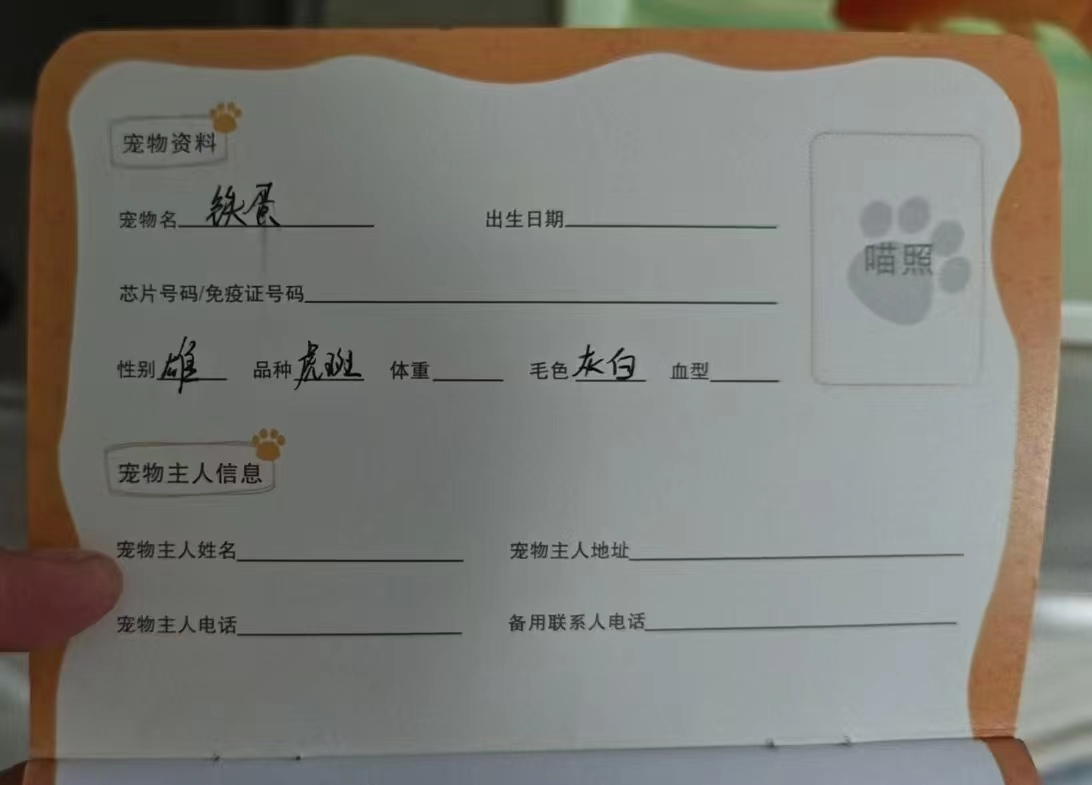 宠物资料
宠物名 铁蛋 出生日期
喵照
芯片号码/免疫证号码
性别 雄 品种 虎斑 体重 毛色 灰白 血型
宠物主人信息
宠物主人姓名 宠物主人地址
宠物主人电话 备用联系人电话